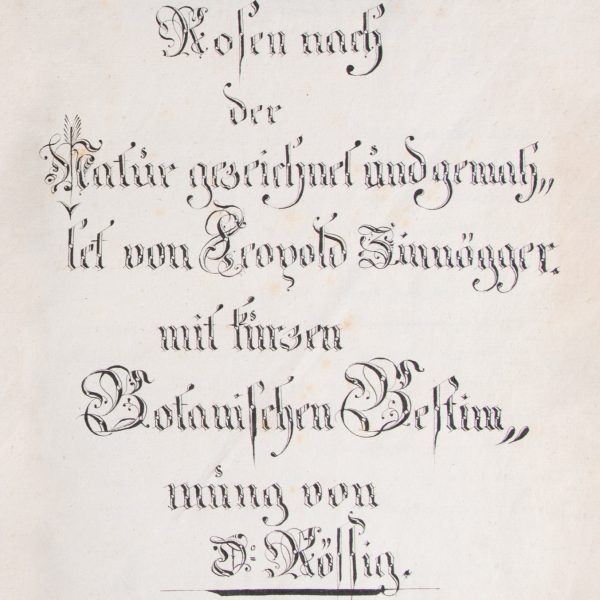 Rosen nach
der
Natur gezeichnet und gemah„
let von Leopold Zinnögger.
mit kurzen
Botanischen Bestim„
mung von
D: Rössig.